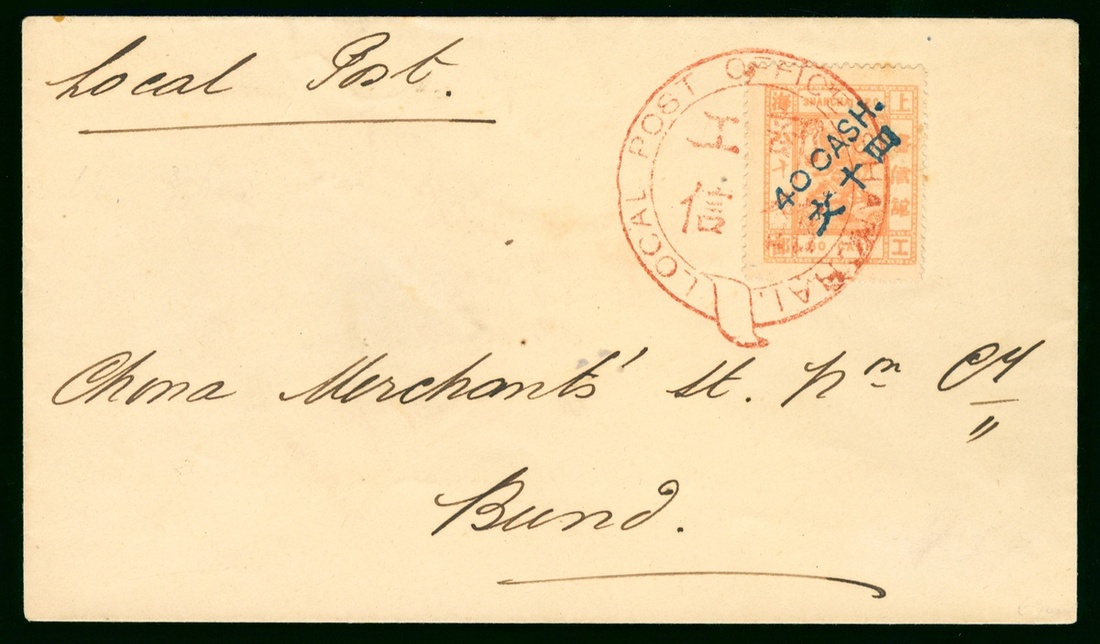 Local Post.
LOCAL POST OFFICE SHANGHAI.
工
信
SHANGHAI
上
海
40 CASH.
四十文
信
工
China Merchants' St. Nn Cy
Bund.